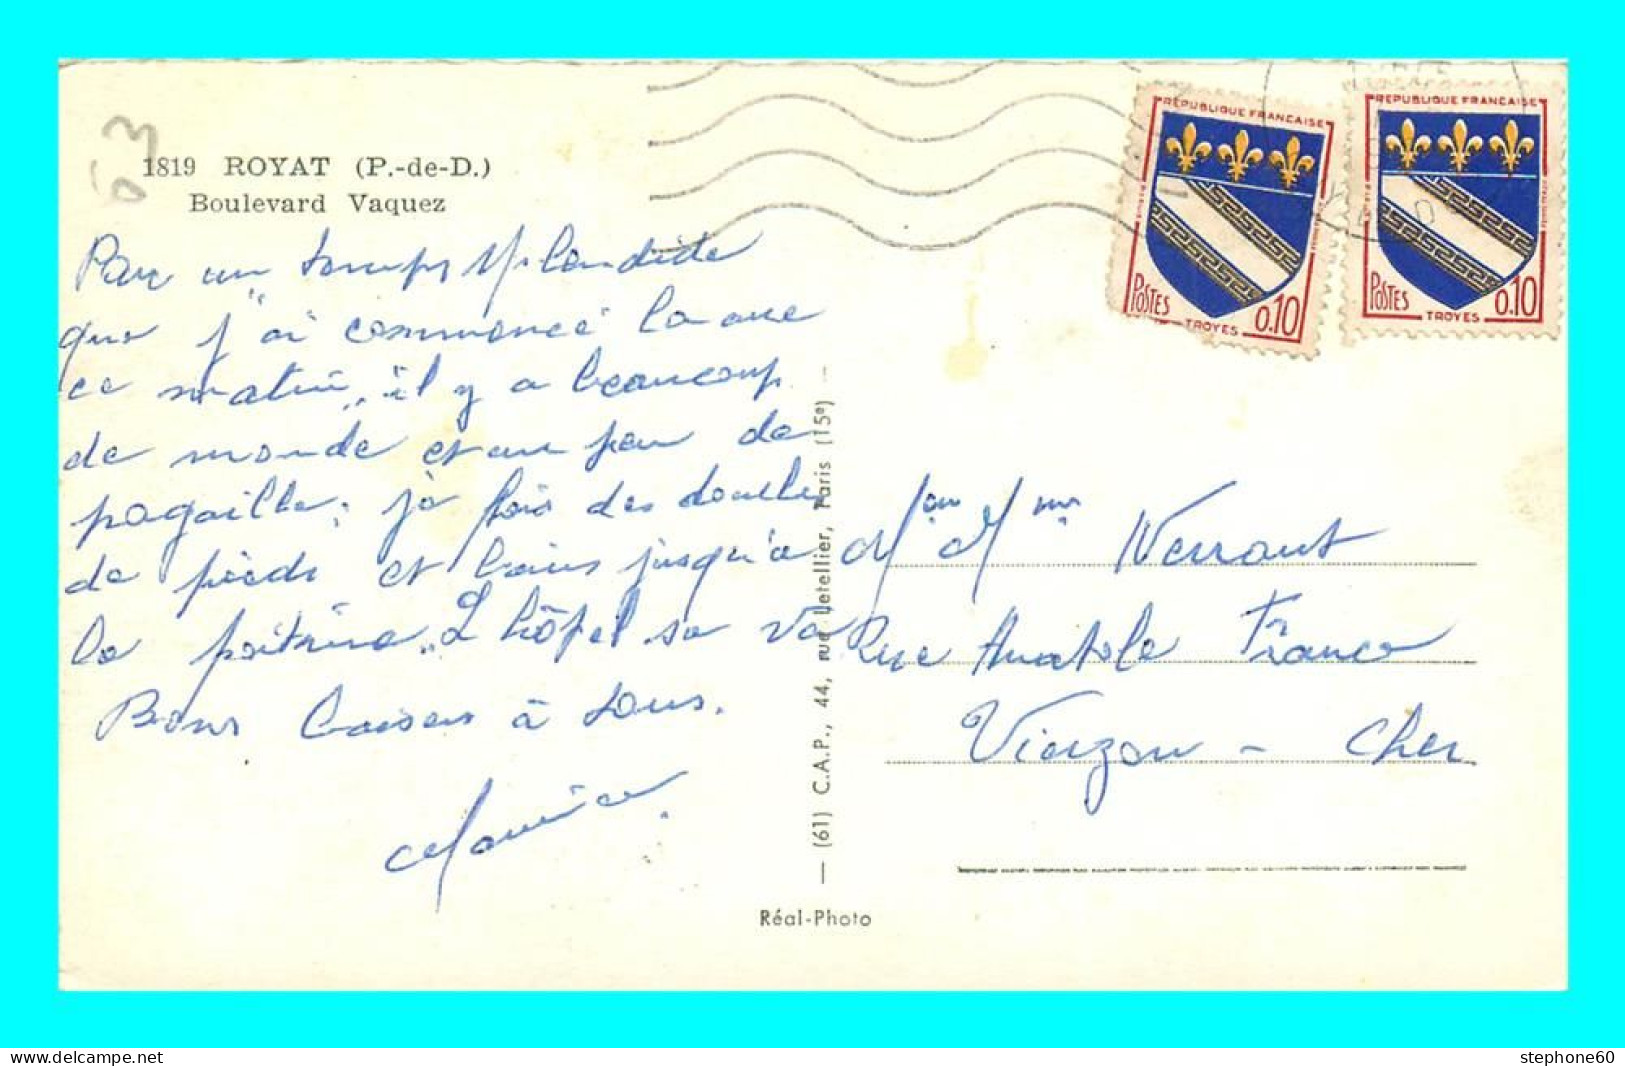 63
1819 ROYAT (P.-de-D.)
Boulevard Vaquez
Par un temps splendide
que j'ai commencé la cure
ce matin, il y a beaucoup
de monde et un peu de
pagaille, je fais des douches
de pieds et bains jusqu'à
la poitrine. L'hôtel sa va
Bons baisers à tous.
Mr et Mme
Rue Anatole France
Vierzon - Cher
RÉPUBLIQUE FRANÇAISE
POSTES TROYES 0.10
RÉPUBLIQUE FRANÇAISE
POSTES TROYES 0.10
— (61) C.A.P., 44, rue Letellier, Paris (15e) —
Réal-Photo
stephone60